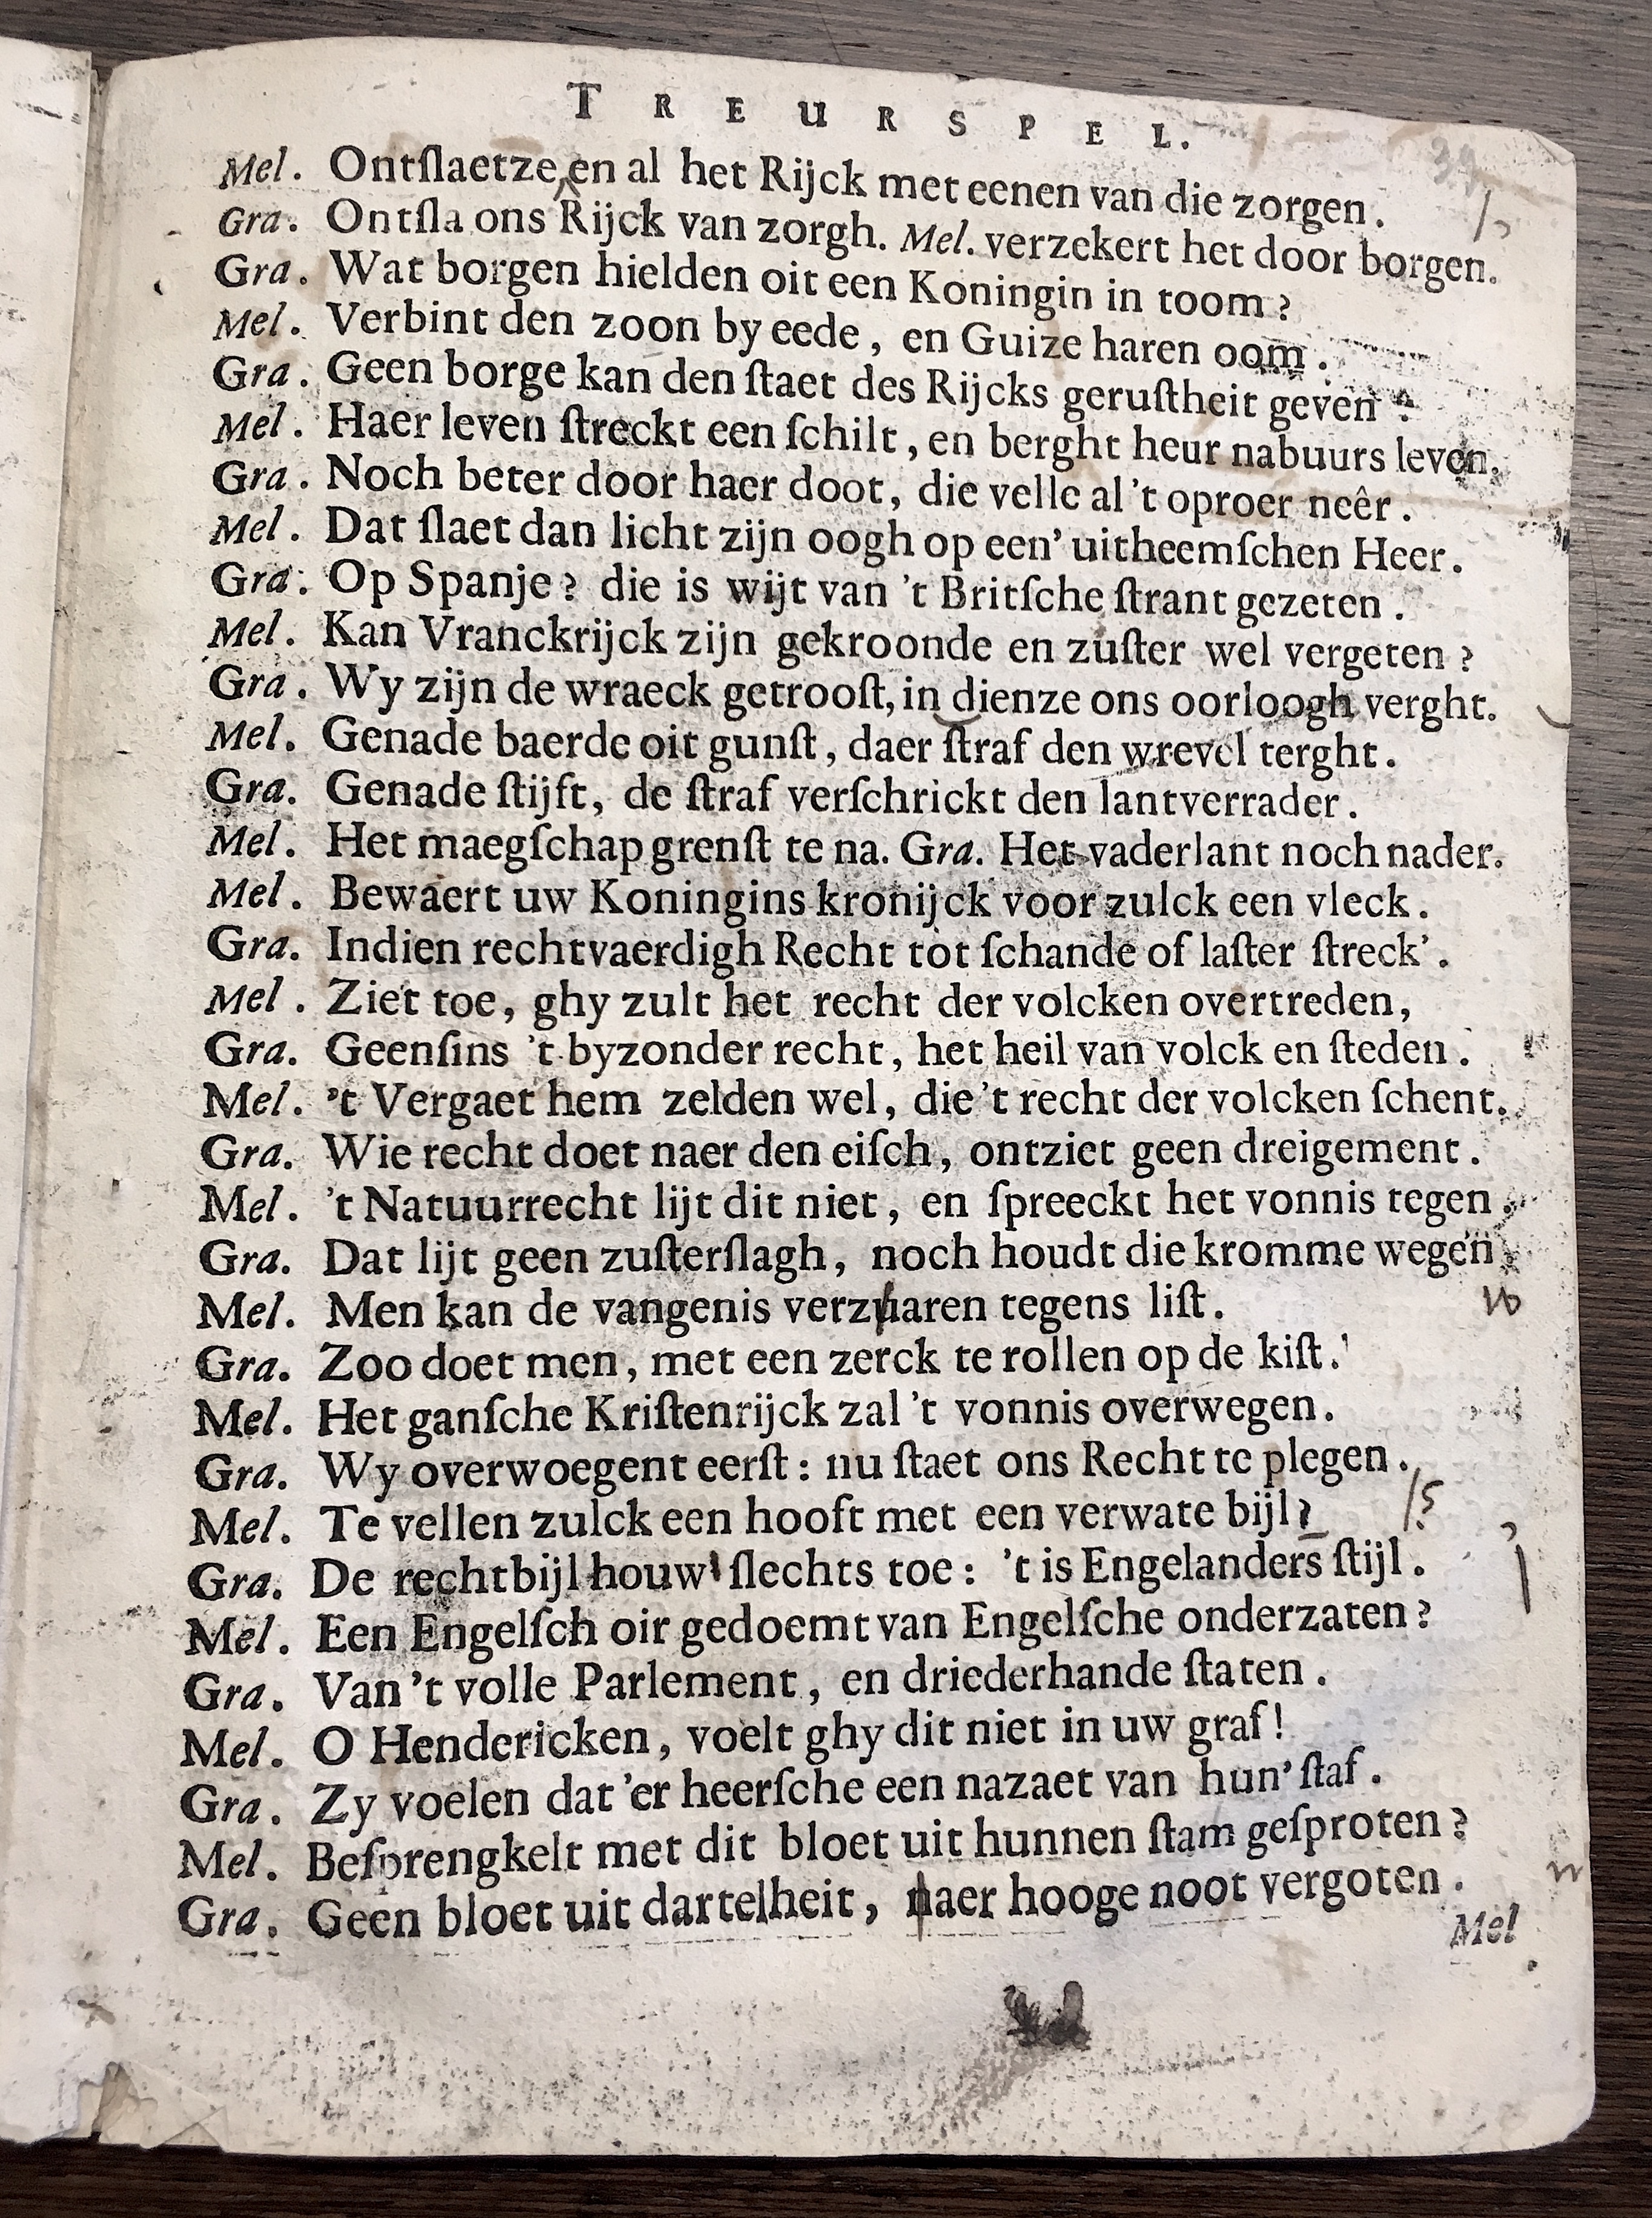 TREURSPEL.
39
Mel. Ontſlaetze en al het Rijck met eenen van die zorgen.
Gra. Ontſla ons Rijck van zorgh. Mel. verzekert het door borgen.
Gra. Wat borgen hielden oit een Koningin in toom?
Mel. Verbint den zoon by eede, en Guize haren oom.
Gra. Geen borge kan den ſtaet des Rijcks geruſtheit geven?
Mel. Haer leven ſtreckt een ſchilt, en berght heur nabuurs leven.
Gra. Noch beter door haer doot, die velle al 't oproer neêr.
Mel. Dat ſlaet dan licht zijn oogh op een' uitheemſchen Heer.
Gra. Op Spanje? die is wijt van 't Britſche ſtrant gezeten.
Mel. Kan Vranckrijck zijn gekroonde en zuſter wel vergeten?
Gra. Wy zijn de wraeck getrooſt, in dienze ons oorloogh verght.
Mel. Genade baerde oit gunſt, daer ſtraf den wrevel terght.
Gra. Genade ſtijft, de ſtraf verſchrickt den lantverrader.
Mel. Het maegſchap grenſt te na. Gra. Het vaderlant noch nader.
Mel. Bewaert uw Koningins kronijck voor zulck een vleck.
Gra. Indien rechtvaerdigh Recht tot ſchande of laſter ſtreck'.
Mel. Ziet toe, ghy zult het recht der volcken overtreden,
Gra. Geenſins 't byzonder recht, het heil van volck en ſteden.
Mel. 't Vergaet hem zelden wel, die 't recht der volcken ſchent.
Gra. Wie recht doet naer den eiſch, ontziet geen dreigement.
Mel. 't Natuurrecht lijt dit niet, en ſpreeckt het vonnis tegen.
Gra. Dat lijt geen zuſterſlagh, noch houdt die kromme wegen.
Mel. Men kan de vangenis verzuaren tegens liſt. w
Gra. Zoo doet men, met een zerck te rollen op de kiſt.
Mel. Het ganſche Kriſtenrijck zal 't vonnis overwegen.
Gra. Wy overwoegent eerſt: nu ſtaet ons Recht te plegen.
Mel. Te vellen zulck een hooft met een verwate bijl?
Gra. De rechtbijl houw' ſlechts toe: 't is Engelanders ſtijl.
Mel. Een Engelſch oir gedoemt van Engelſche onderzaten?
Gra. Van 't volle Parlement, en driederhande ſtaten.
Mel. O Hendericken, voelt ghy dit niet in uw graf!
Gra. Zy voelen dat 'er heerſche een nazaet van hun' ſtaf.
Mel. Beſprengkelt met dit bloet uit hunnen ſtam geſproten?
Gra. Geen bloet uit dartelheit, naer hooge noot vergoten.
Mel